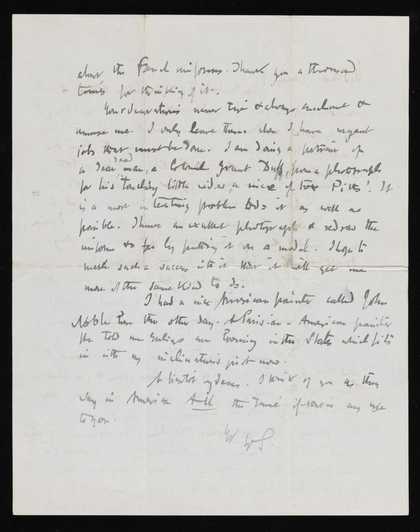 about the French uniforms. Thank you a thousand
times for thinking of it.
Your decorations never tire & always enchant &
amuse me. I only leave them when I have urgent
jobs that must be done. I am doing a portrait of
a dead man, a Colonel Grant Duff, from a photograph
for his touching little widow, a niece of Pitts'. It
is a most interesting problem to do it as well as
possible. I have an excellent photograph & redraw the
uniform so far by putting it on a model. I hope to
make such a success with it that it will get me
more of the same kind to do.
I had a nice American painter called John
Noble here the other day. A Parisian-American painter
He told me things are booming in the States which fits
in with my inclinations just now.
A bientot my dears. I think of you all the
way in America and the time if I can be any use
to you.
W